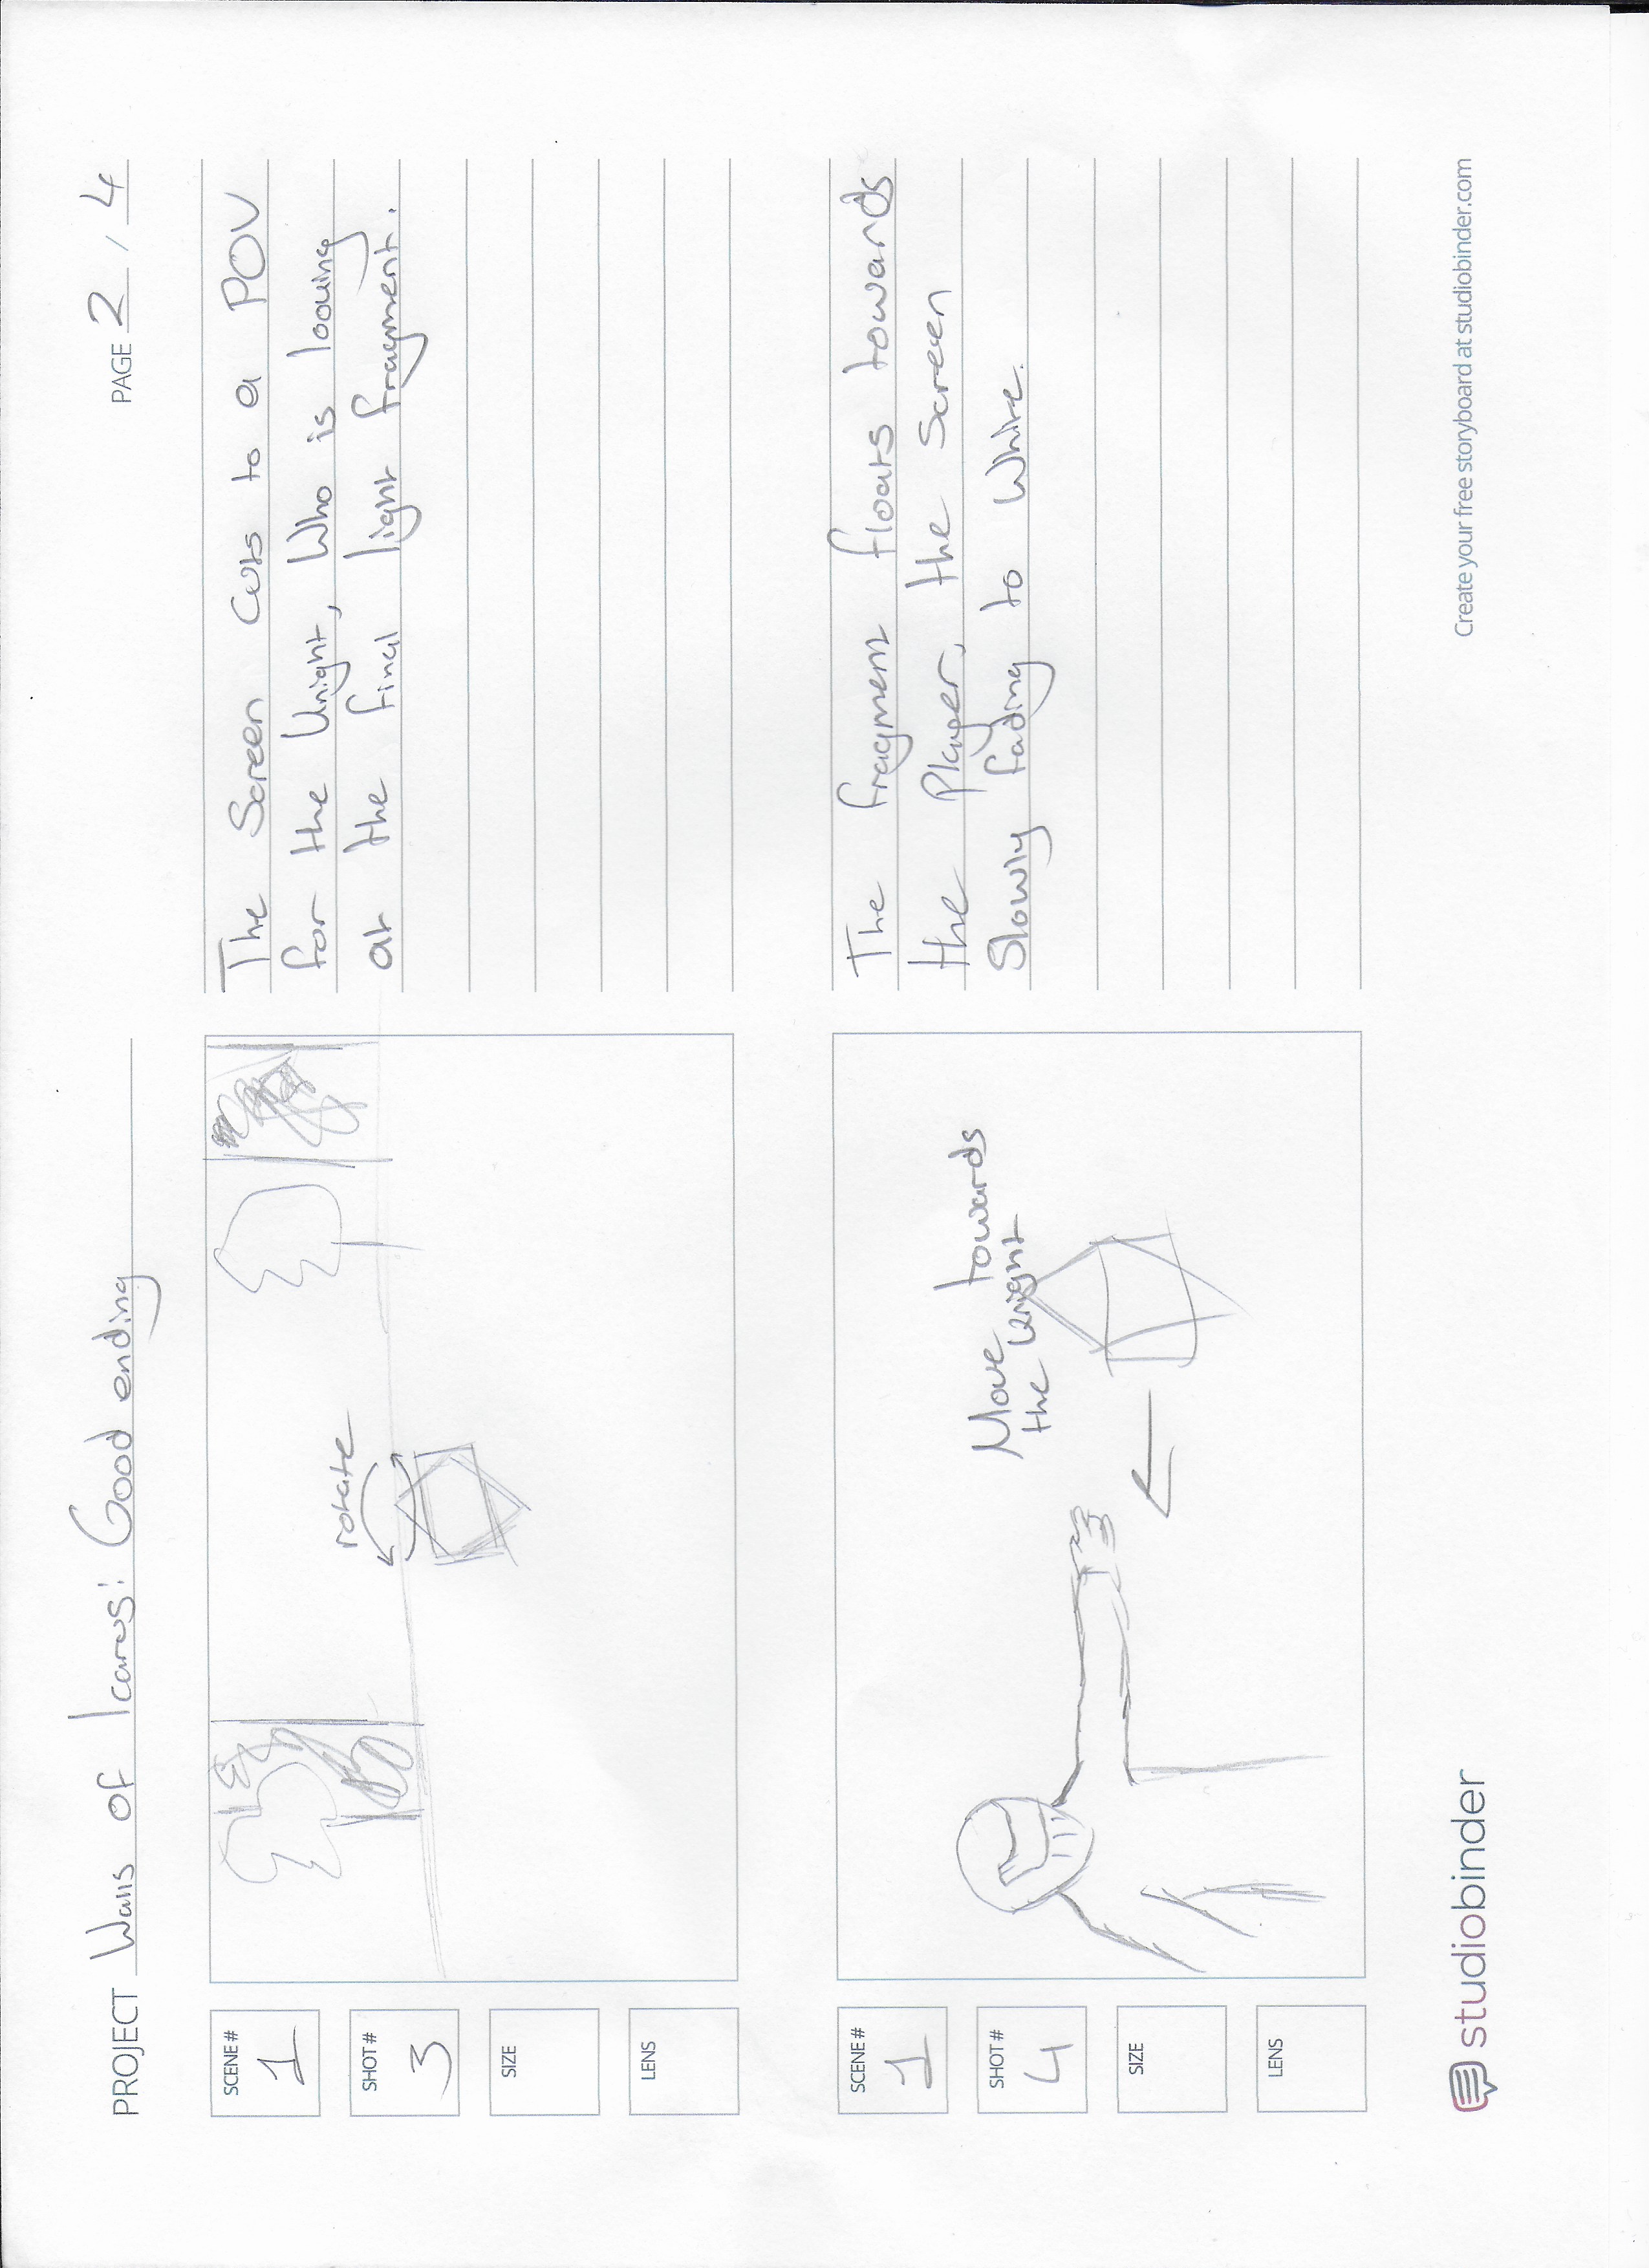 PROJECT Walls of Icarus: Good ending
PAGE 2 / 4
SCENE #
1
SHOT #
3
SIZE
LENS
rotate
The Screen Cuts to a POV
for the knight, Who is looking
at the final light fragment.
SCENE #
1
SHOT #
4
SIZE
LENS
Move towards
the knight
The fragment floats towards
the Player, the Screen
Slowly fading to White.
studiobinder
Create your free storyboard at studiobinder.com